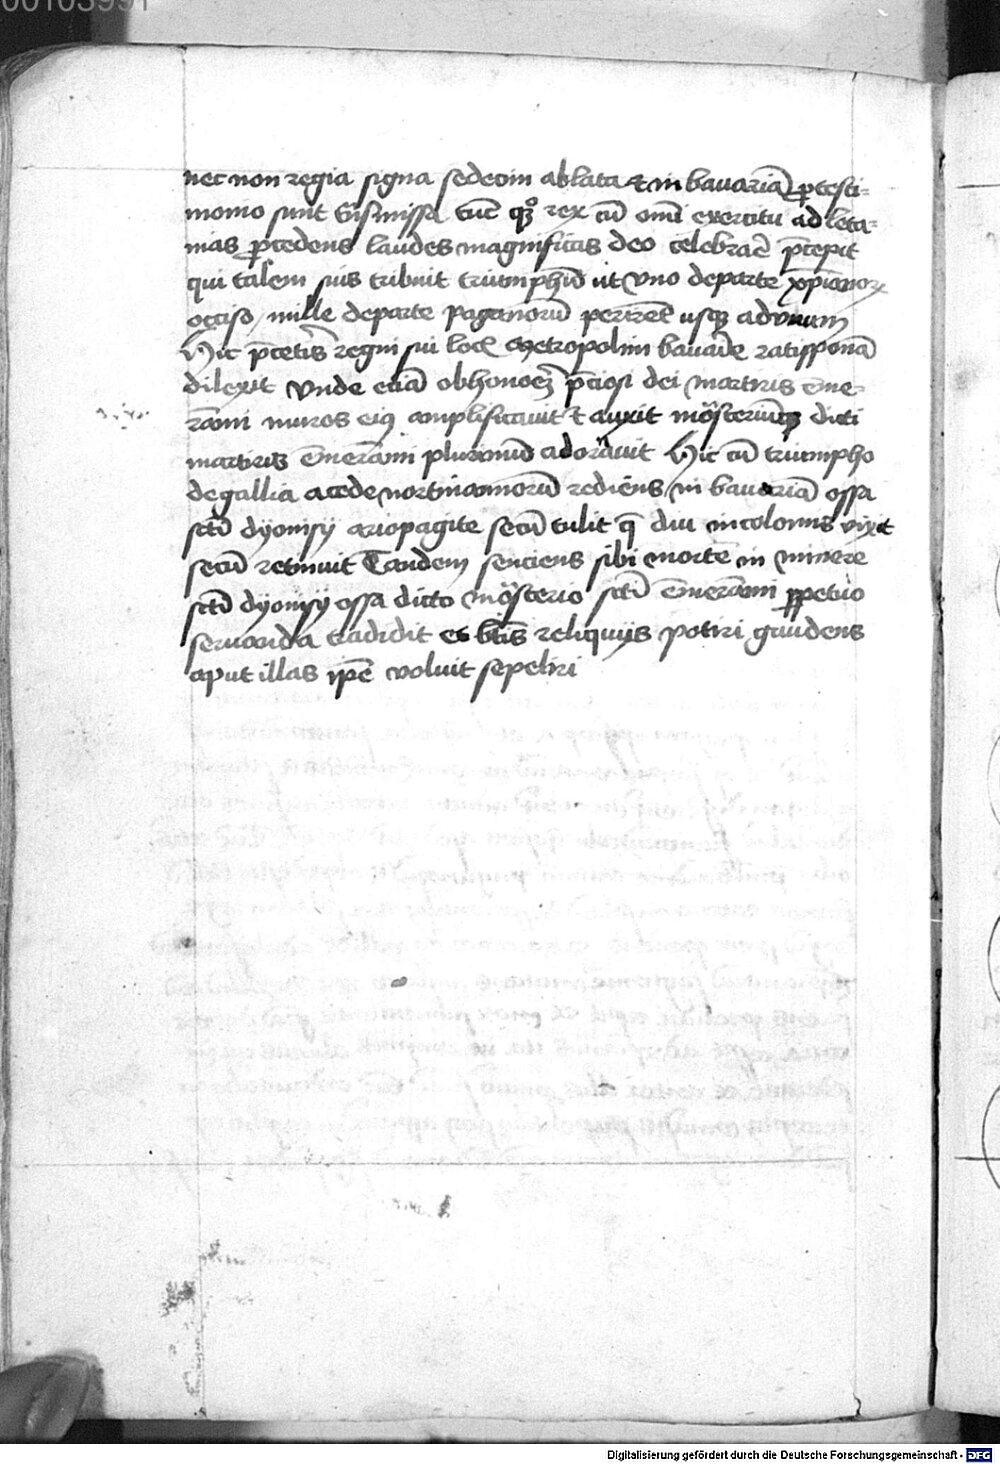 00103991
nec non regia signa sedecim ablata et in bavariā ꝓ testi-
monio sunt trāsmissa tūc q̄ꝫ rex cū om̄i exercitu ad leta-
nias ꝓcedens laudes magnificas deo celebrar̄ p̄cepit
qui talem suis tribuit triumphū ut vno de parte xp̄ianoꝝ
occiso mille de parte paganorū perirent usqꝫ ad vnum
Hic p̄ ceteris regni sui locꝭ metropolim bavarie ratisponā
dilexit vnde eciā ob honorē p̄ciosi dei martiris em̄e-
rāmi muros eiꝯ amplificavit et auxit mōsteriūqꝫ dicti
martiris em̄erāmi plurimū adoravit Hic cū triumpho
de gallia a cede nortmannorū rediens in bavariā ossa
sc̄ti dyonisÿ ariopagite secū tulit q̄ diu incolomis vixit
secū retinuit Tandem senciens sibi mortē in minere
sc̄ti dyonisÿ ossa dicto mōsterio sc̄ti em̄erāmi ꝑpetuo
servanda tradidit et bt̄is reliquÿs potiri gaudens
aput illas ip̄e voluit sepeliri
Digitalisierung gefördert durch die Deutsche Forschungsgemeinschaft - DFG